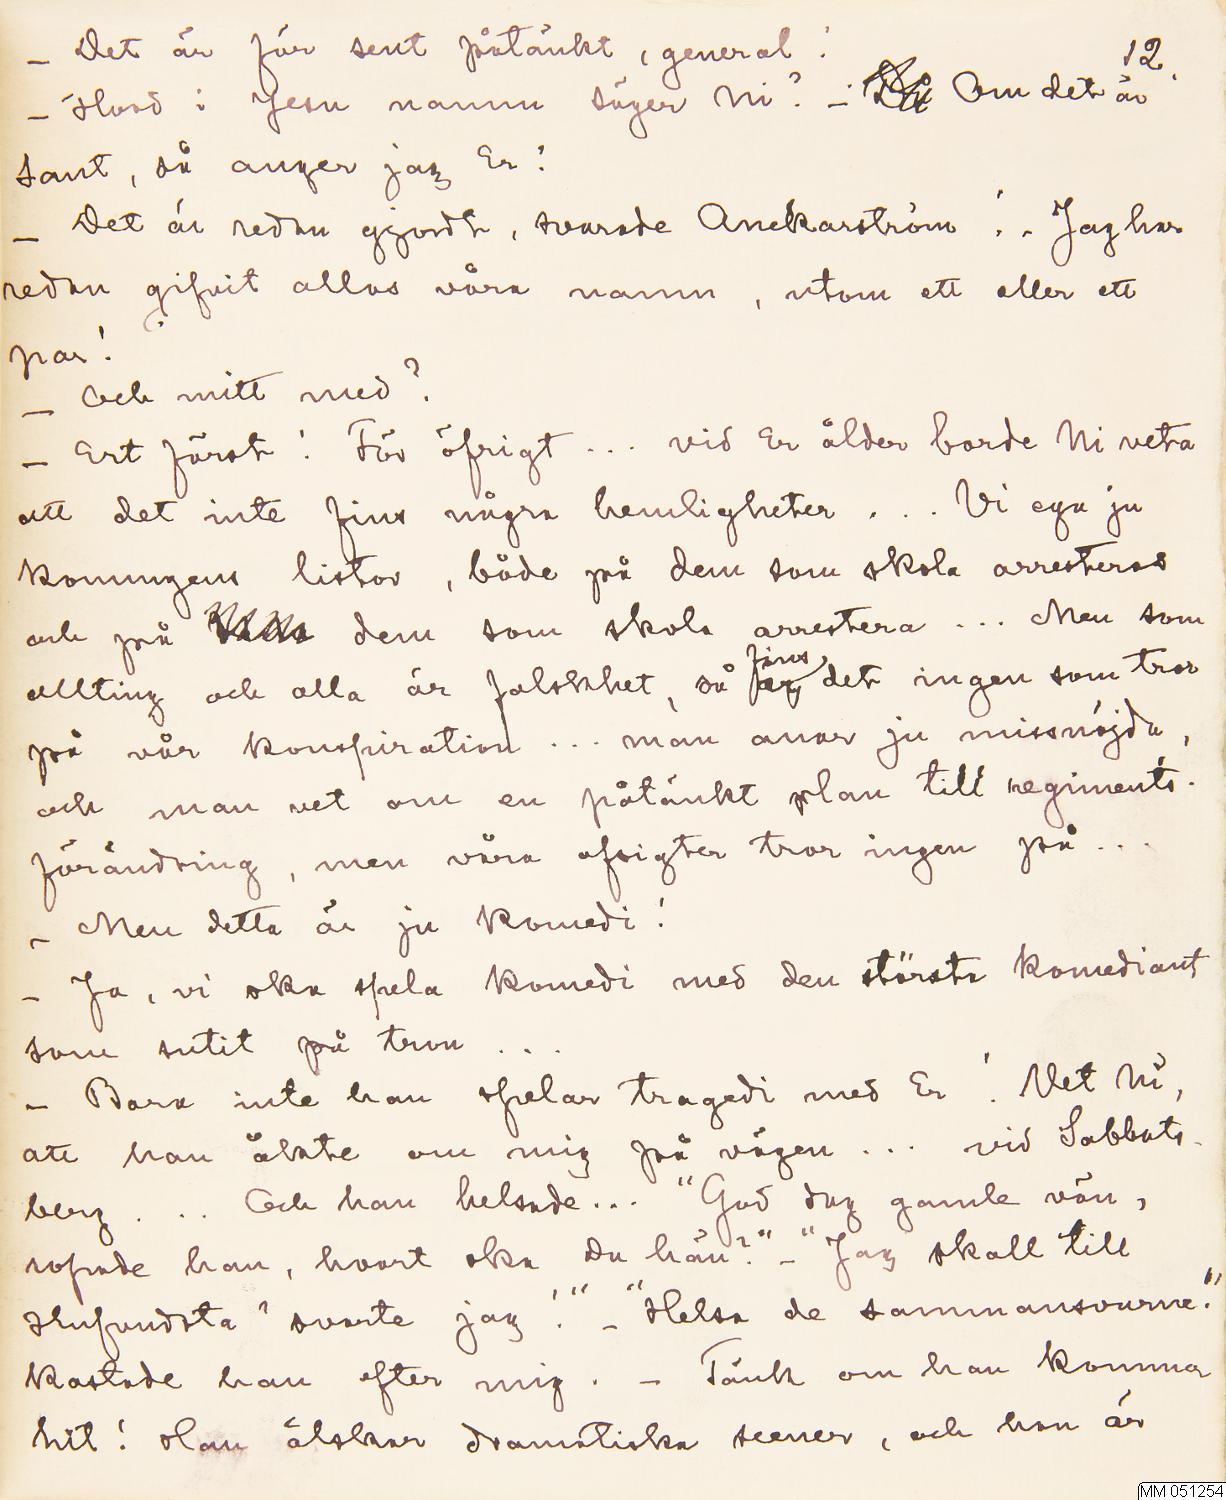 12.
– Det är för sent påtänkt, general!
– Hvad i Jesu namn säger Ni? – Om det är
sant, så anger jag Er!
– Det är redan gjordt, svarade Anckarström! – Jag har
redan gifvit allas våra namn, utom ett eller ett
par!
– Och mitt med?
– Ert först! För öfrigt ... vid Er ålder borde Ni veta
att det inte fins några hemligheter ... Vi ega ju
konungens listor, både på dem som skola arresteras
och på dem som skola arrestera ... Men som
allting och alla är falskhet, så fins det ingen som tror
på vår konspiration ... man anar ju missnöjda,
och man vet om en påtänkt plan till regiments-
förändring, men våra afsigter tror ingen på ...
– Men detta är ju komedi!
– Ja, vi ska spela komedi med den största komediant
som sutit på tron ...
– Bara inte han spelar tragedi med Er! Vet Ni,
att han åkte om mig på vägen ... vid Sabbats-
berg ... Och han helsade ... "God dag gamle vän,
ropade han, hvart ska Du hän?" – "Jag skall till
Hufvudsta" svarte jag!" – "Helsa de sammansvurne!"
kastade han efter mig. – Tänk om han komma
hit! Han älskar dramatiska scener, och han är
MM 051254